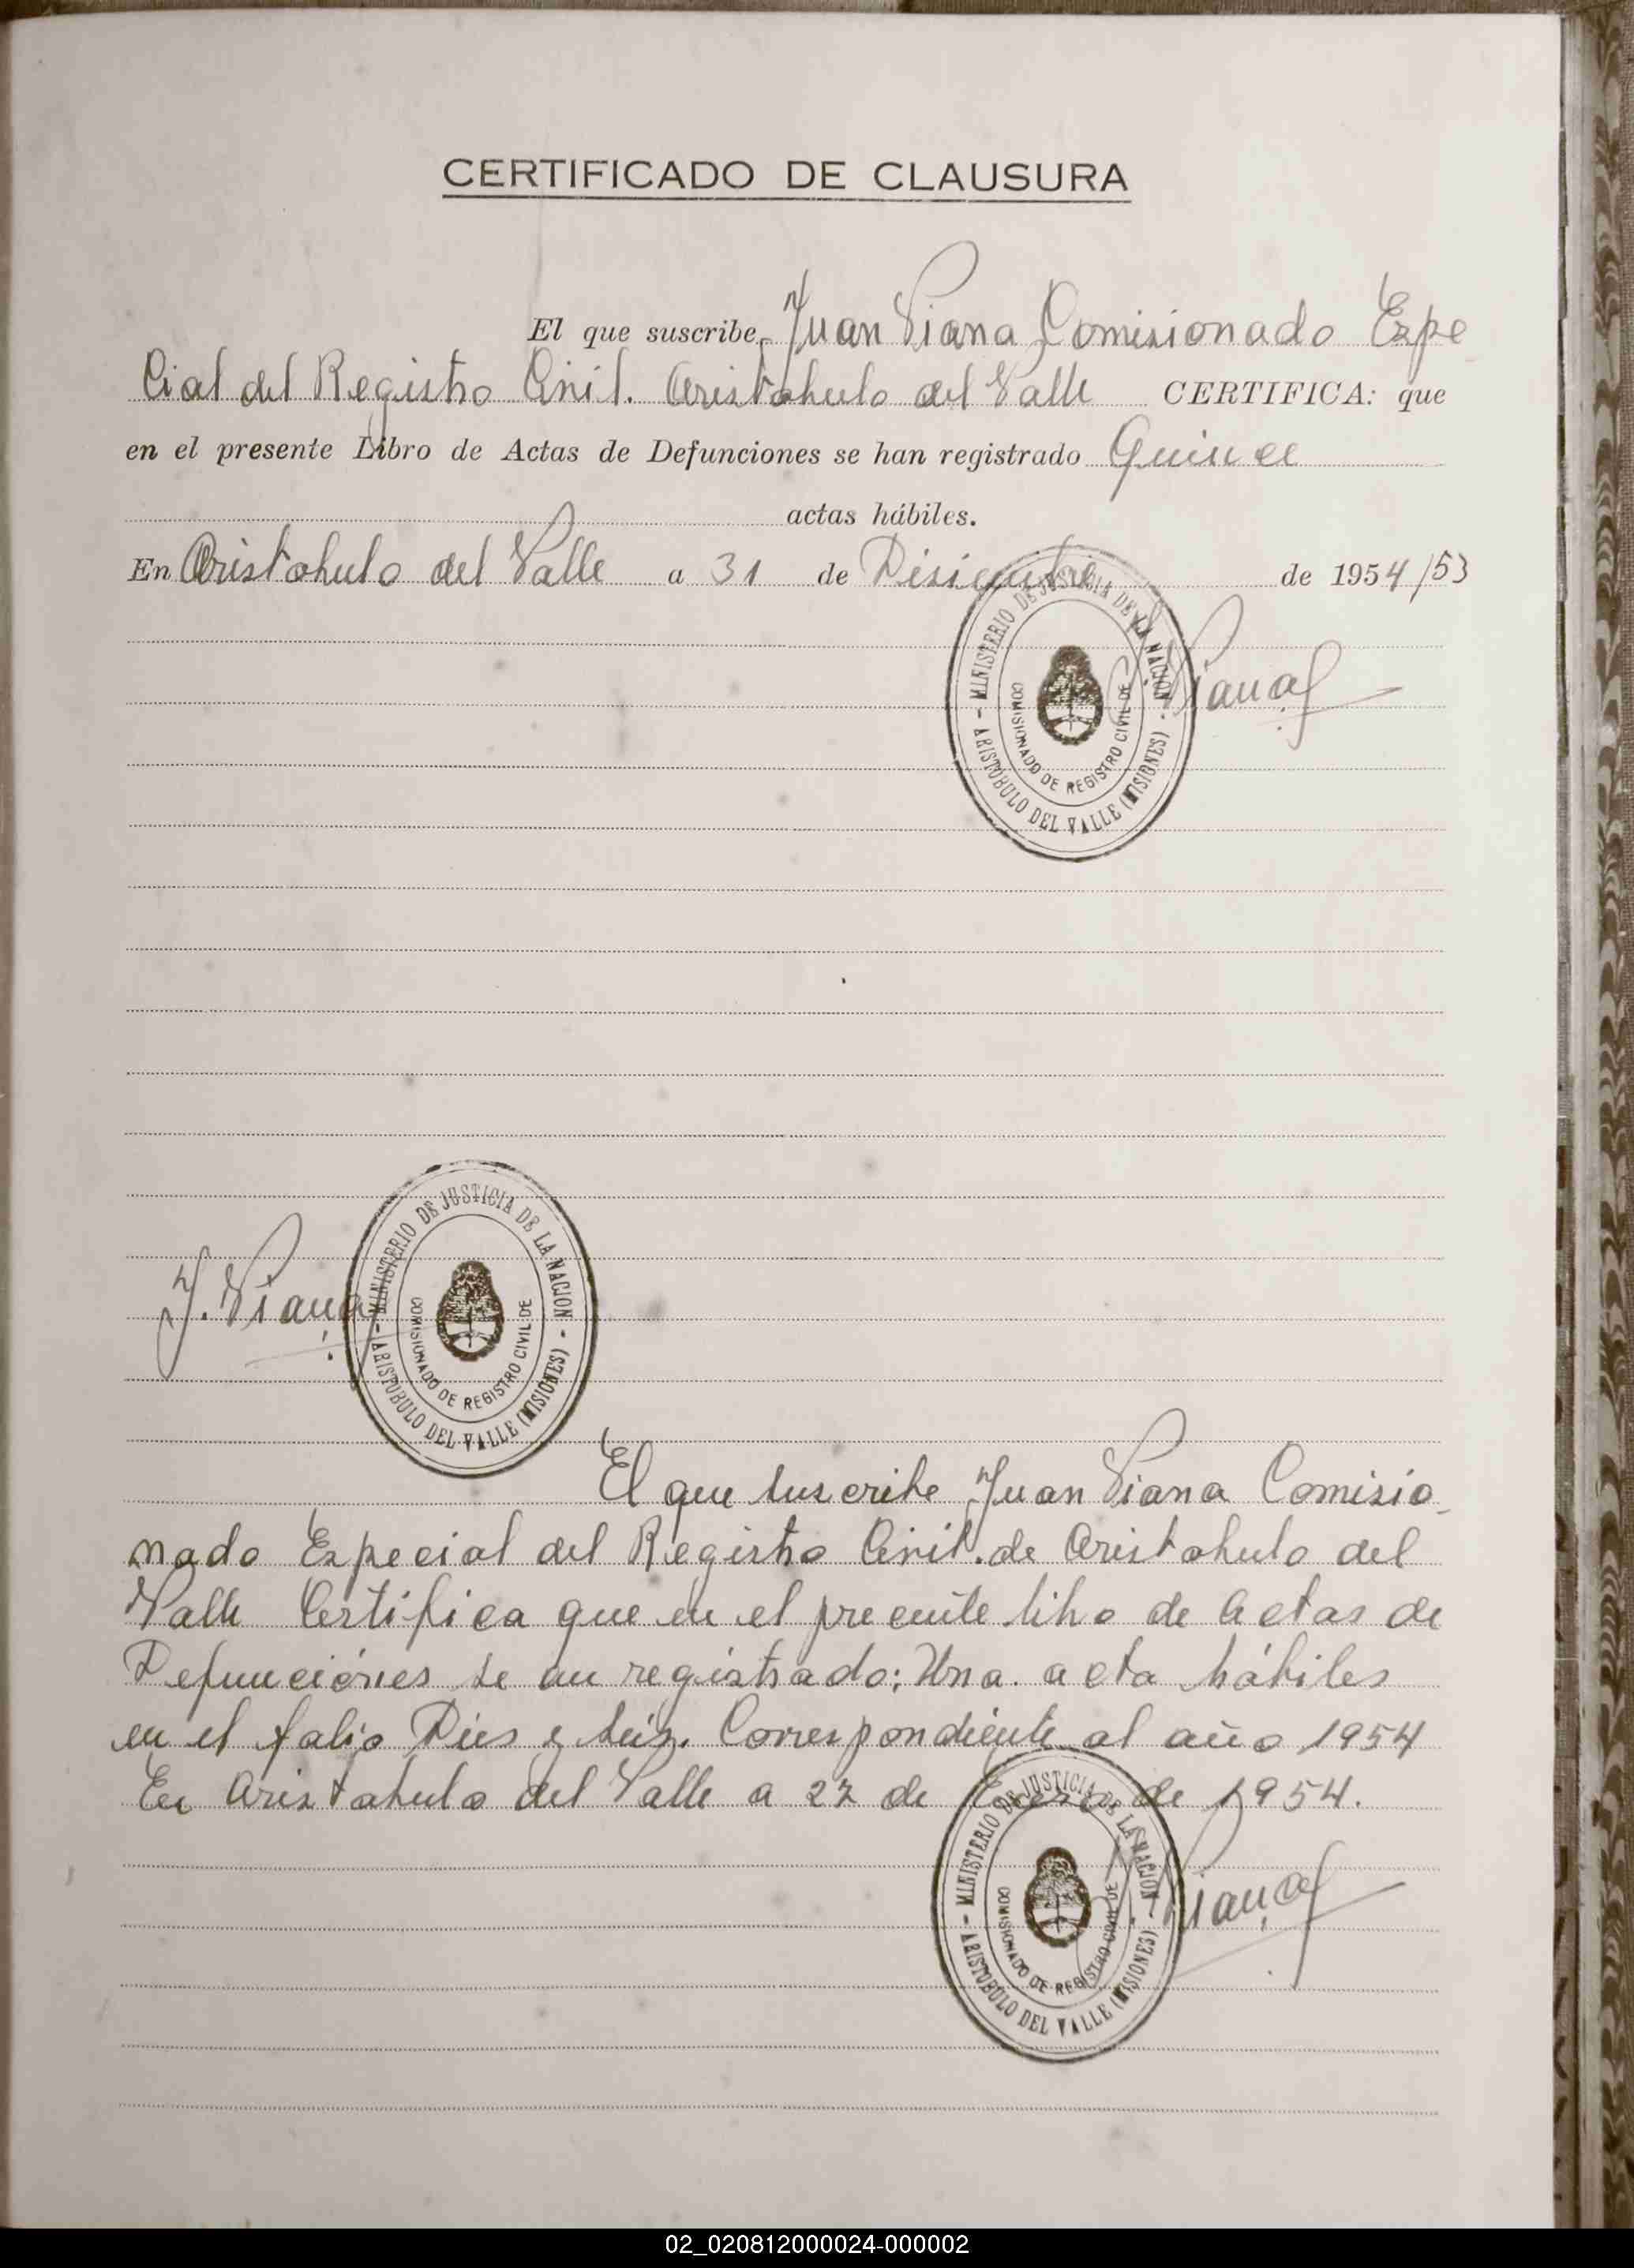 CERTIFICADO DE CLAUSURA
El que suscribe, Juan Piana Comisionado Espe
cial del Registro Civil. Aristobulo del Valle CERTIFICA: que
en el presente Libro de Actas de Defunciones se han registrado Quince
actas hábiles.
En Aristobulo del Valle a 31 de Disiembre de 1954/53
J. Piana
MINISTERIO DE JUSTICIA DE LA NACION
COMISIONADO DE REGISTRO CIVIL DE
ARISTOBULO DEL VALLE (MISIONES)
J. Piana
MINISTERIO DE JUSTICIA DE LA NACION
COMISIONADO DE REGISTRO CIVIL DE
ARISTOBULO DEL VALLE (MISIONES)
El que suscribe Juan Piana Comisio
nado Especial del Registro Civil. de Aristobulo del
Valle Certifica que en el precente libro de actas de
Defunciónes se an registrado: Una acta hábiles
en el folio Dies y seis. Correspondiente al año 1954
En Aristobulo del Valle a 27 de Enero de 1954.
J. Piana
MINISTERIO DE JUSTICIA DE LA NACION
COMISIONADO DE REGISTRO CIVIL DE
ARISTOBULO DEL VALLE (MISIONES)
02_020812000024-000002